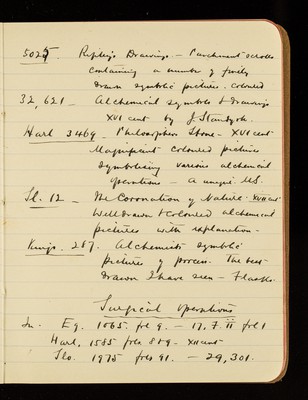 5025. Ripley's Drawings – Parchment scrolls
containing a number of finely
drawn symbolic pictures. coloured
32,621 – Alchemical symbols & drawings
XVI cent by J. Standysh.
Harl 3469 – Philosophers Stone – XVI cent
Magnificent coloured pictures
symbolising various alchemical
operations – a unique MS.
Sl. 12 – The Coronation of Nature. XVII cent
Well drawn & coloured alchemical
pictures with explanation.
Kings. 267. Alchemists symbolic
pictures of process. The best
drawn I have seen – Flasks.
Surgical Operations
In. Eg. 1065. fol 9. – 17. 7. II fol 1
Harl. 1585 fols 8&9 – XII cent
Slo. 1975 fols 91. – 29,301.